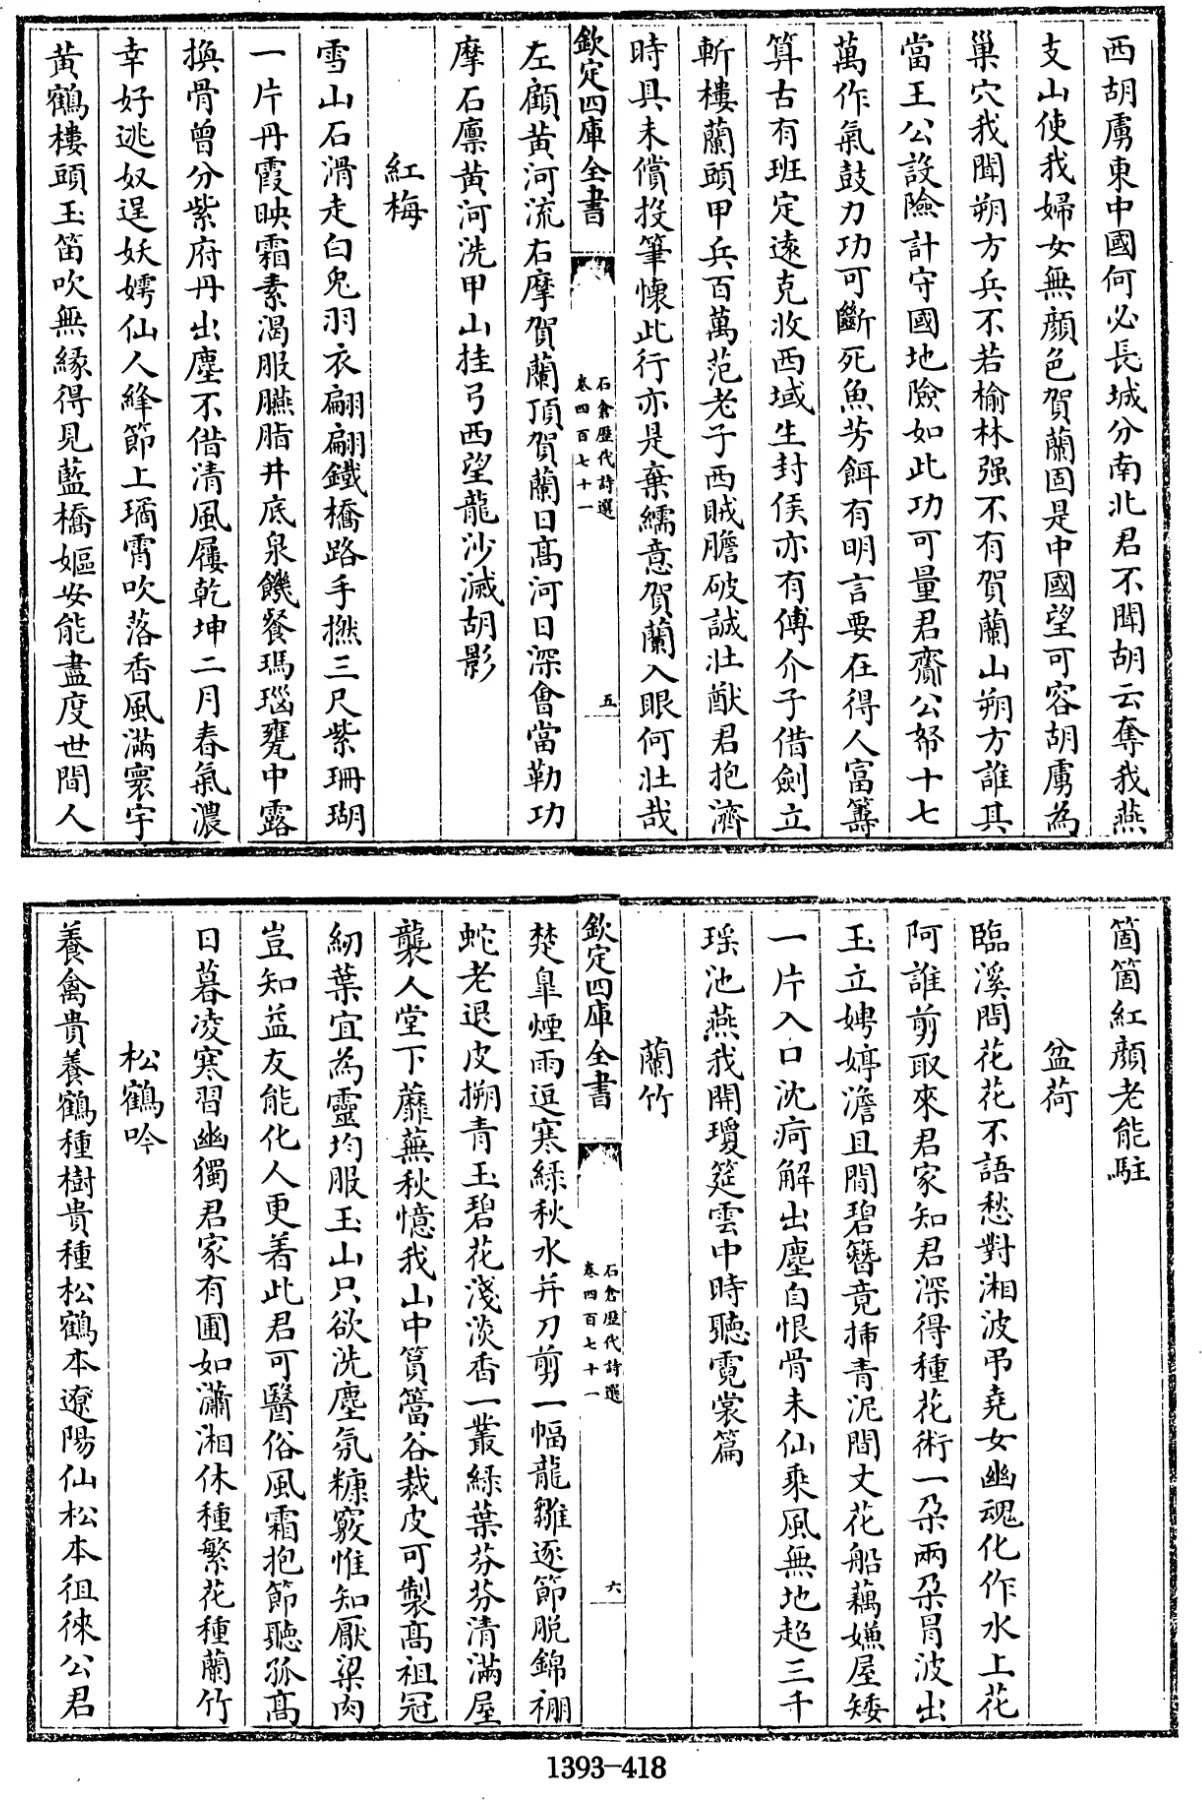 西胡虜東中國何必長城分南北君不聞胡云奪我燕
支山使我婦女無顔色賀蘭固是中國望可容胡虜為
巢穴我聞朔方兵不若榆林强不有賀蘭山朔方誰其
當王公設險計守國地險如此功可量君齎公帑十七
萬作氣鼓力功可斷死魚芳餌有明言要在得人富籌
算古有班定遠克收西域生封侯亦有傅介子借劍立
斬樓蘭頭甲兵百萬范老子西賊膽破誠壯猷君抱濟
時具未償投筆懷此行亦是棄繻意賀蘭入眼何壯哉
欽定四庫全書
石倉歷代詩選
卷四百七十一
五
左顧黄河流右摩賀蘭頂賀蘭日髙河日深會當勒功
摩石廪黄河洗甲山挂弓西望龍沙滅胡影
紅梅
雪山石滑走白兎羽衣翩翩鐵橋路手撚三尺紫珊瑚
一片丹霞映霜素渴服臙脂井底泉饑餐瑪瑙甕中露
換骨曾分紫府丹出塵不借清風屨乾坤二月春氣濃
幸好逃奴逞妖嫮仙人絳節上璚霄吹落香風滿寰宇
黄鶴樓頭玉笛吹無緣得見藍橋嫗安能盡度世間人
箇箇紅顔老能駐
盆荷
臨溪問花花不語愁對湘波弔堯女幽魂化作水上花
阿誰剪取來君家知君深得種花術一朶兩朶冐波出
玉立娉婷澹且閒碧簪竟揷青泥間丈花船藕嫌屋矮
一片入口沈痾解出塵自恨骨未仙乘風無地超三千
瑶池燕我開瓊筵雲中時聽霓裳篇
蘭竹
欽定四庫全書
石倉歷代詩選
卷四百七十一
六
楚臯煙雨逗寒緑秋水并刀剪一幅龍雛逐節脱錦褓
蛇老退皮搠青玉碧花淺淡香一叢緑葉芬芬清滿屋
襲人堂下蘼蕪秋憶我山中篔簹谷裁皮可製髙祖冠
紉葉宜為靈均服玉山只欲洗塵氛糠竅惟知厭粱肉
豈知益友能化人更着此君可醫俗風霜抱節聽孤髙
日暮凌寒習幽獨君家有圃如瀟湘休種繁花種蘭竹
松鶴吟
養禽貴養鶴種樹貴種松鶴本遼陽仙松本徂徠公君
1393-418